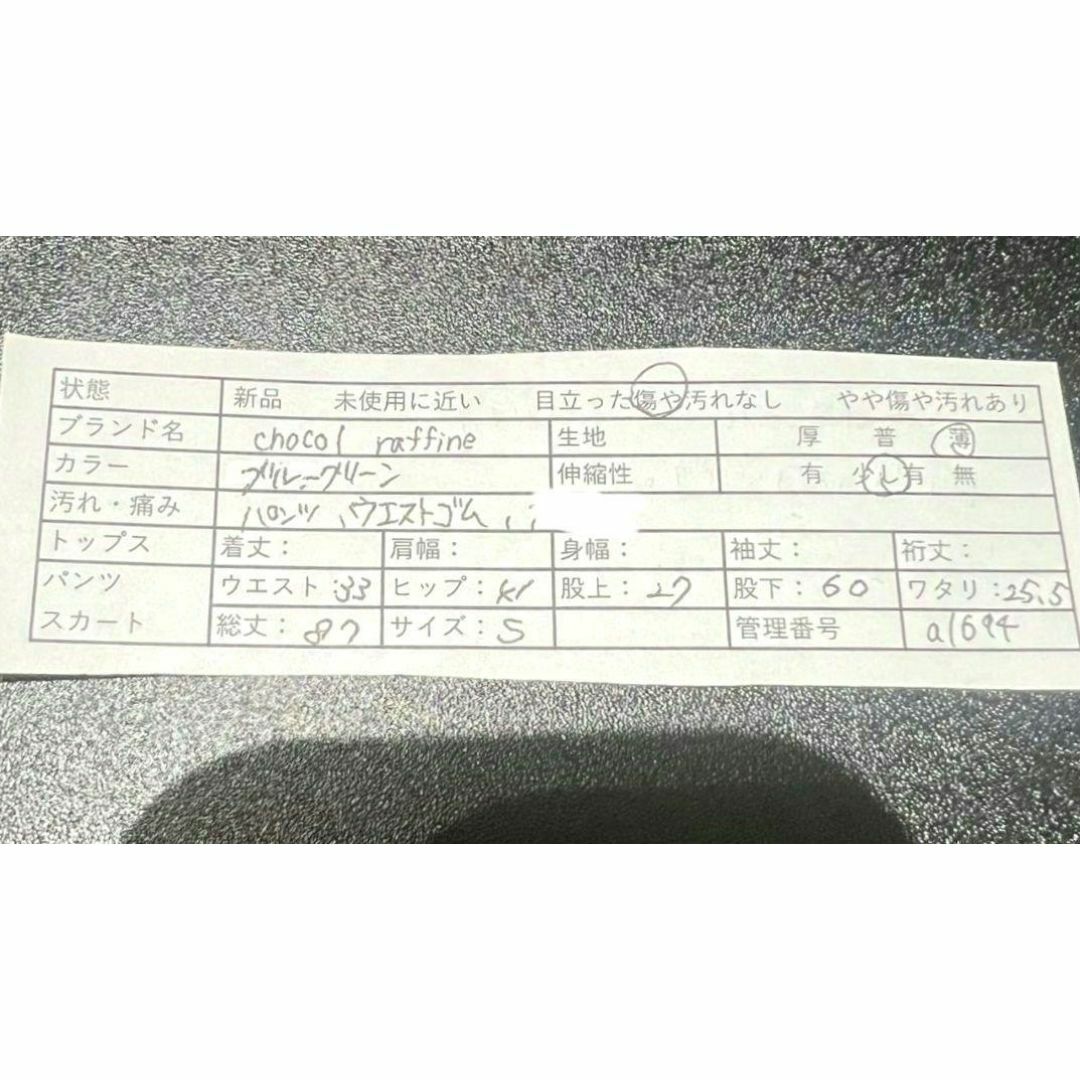 状態 新品 未使用に近い 目立った傷や汚れなし やや傷や汚れあり
ブランド名 chocol raffine 生地 厚 普 薄
カラー グリーン 伸縮性 有 少し有 無
汚れ・痛み パンツ、ウエストゴム、
トップス 着丈: 肩幅: 身幅: 袖丈: 裄丈:
パンツ ウエスト:33 ヒップ: 股上:27 股下:60 ワタリ:25.5
スカート 総丈:87 サイズ:S 管理番号 a1694